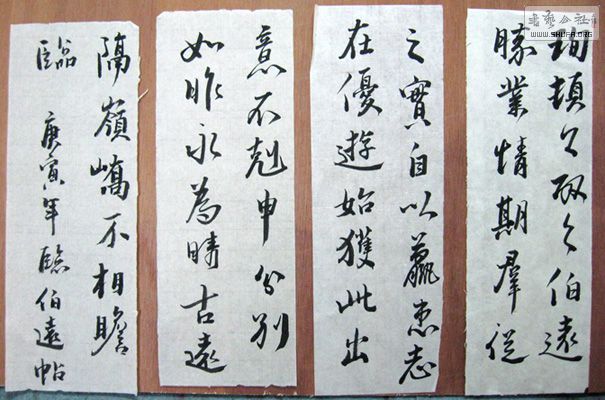 珣頓首頓首伯遠
勝業情期羣從
之寶自以羸患志
在優遊始獲此出
意不剋申分別
如昨永為疇古遠
隔嶺嶠不相瞻
臨 庚寅年臨伯遠帖
書藝公社
WWW.SHUFA.ORG